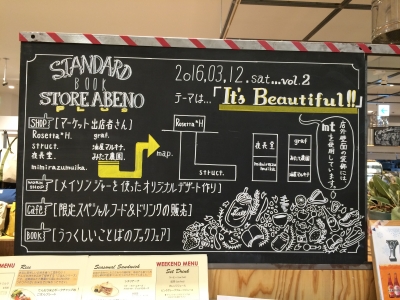 STANDARD
BOOK
STORE ABENO
2016.03.12.sat...vol.2
テーマは...「It's Beautiful!!」
SHOP [マーケット出店者さん]
Rosetta*H. graf.
struct. 油屋マルキチ.
夜長堂. みたて農園.
mimirazumuika.
map.
Rosetta*H
struct.
夜長堂
graf
油屋マルキチ
みたて農園
店外壁面の装飾には、
mtを使用しています。
WORK SHOP [メイソンジャーを使ったオリジナルデザート作り]
Café [限定スペシャルフード&ドリンクの販売]
BOOK [うつくしいことばのブックフェア]
MENU
Rice
Seasonal Sandwich
WEEKEND MENU
Set Drink